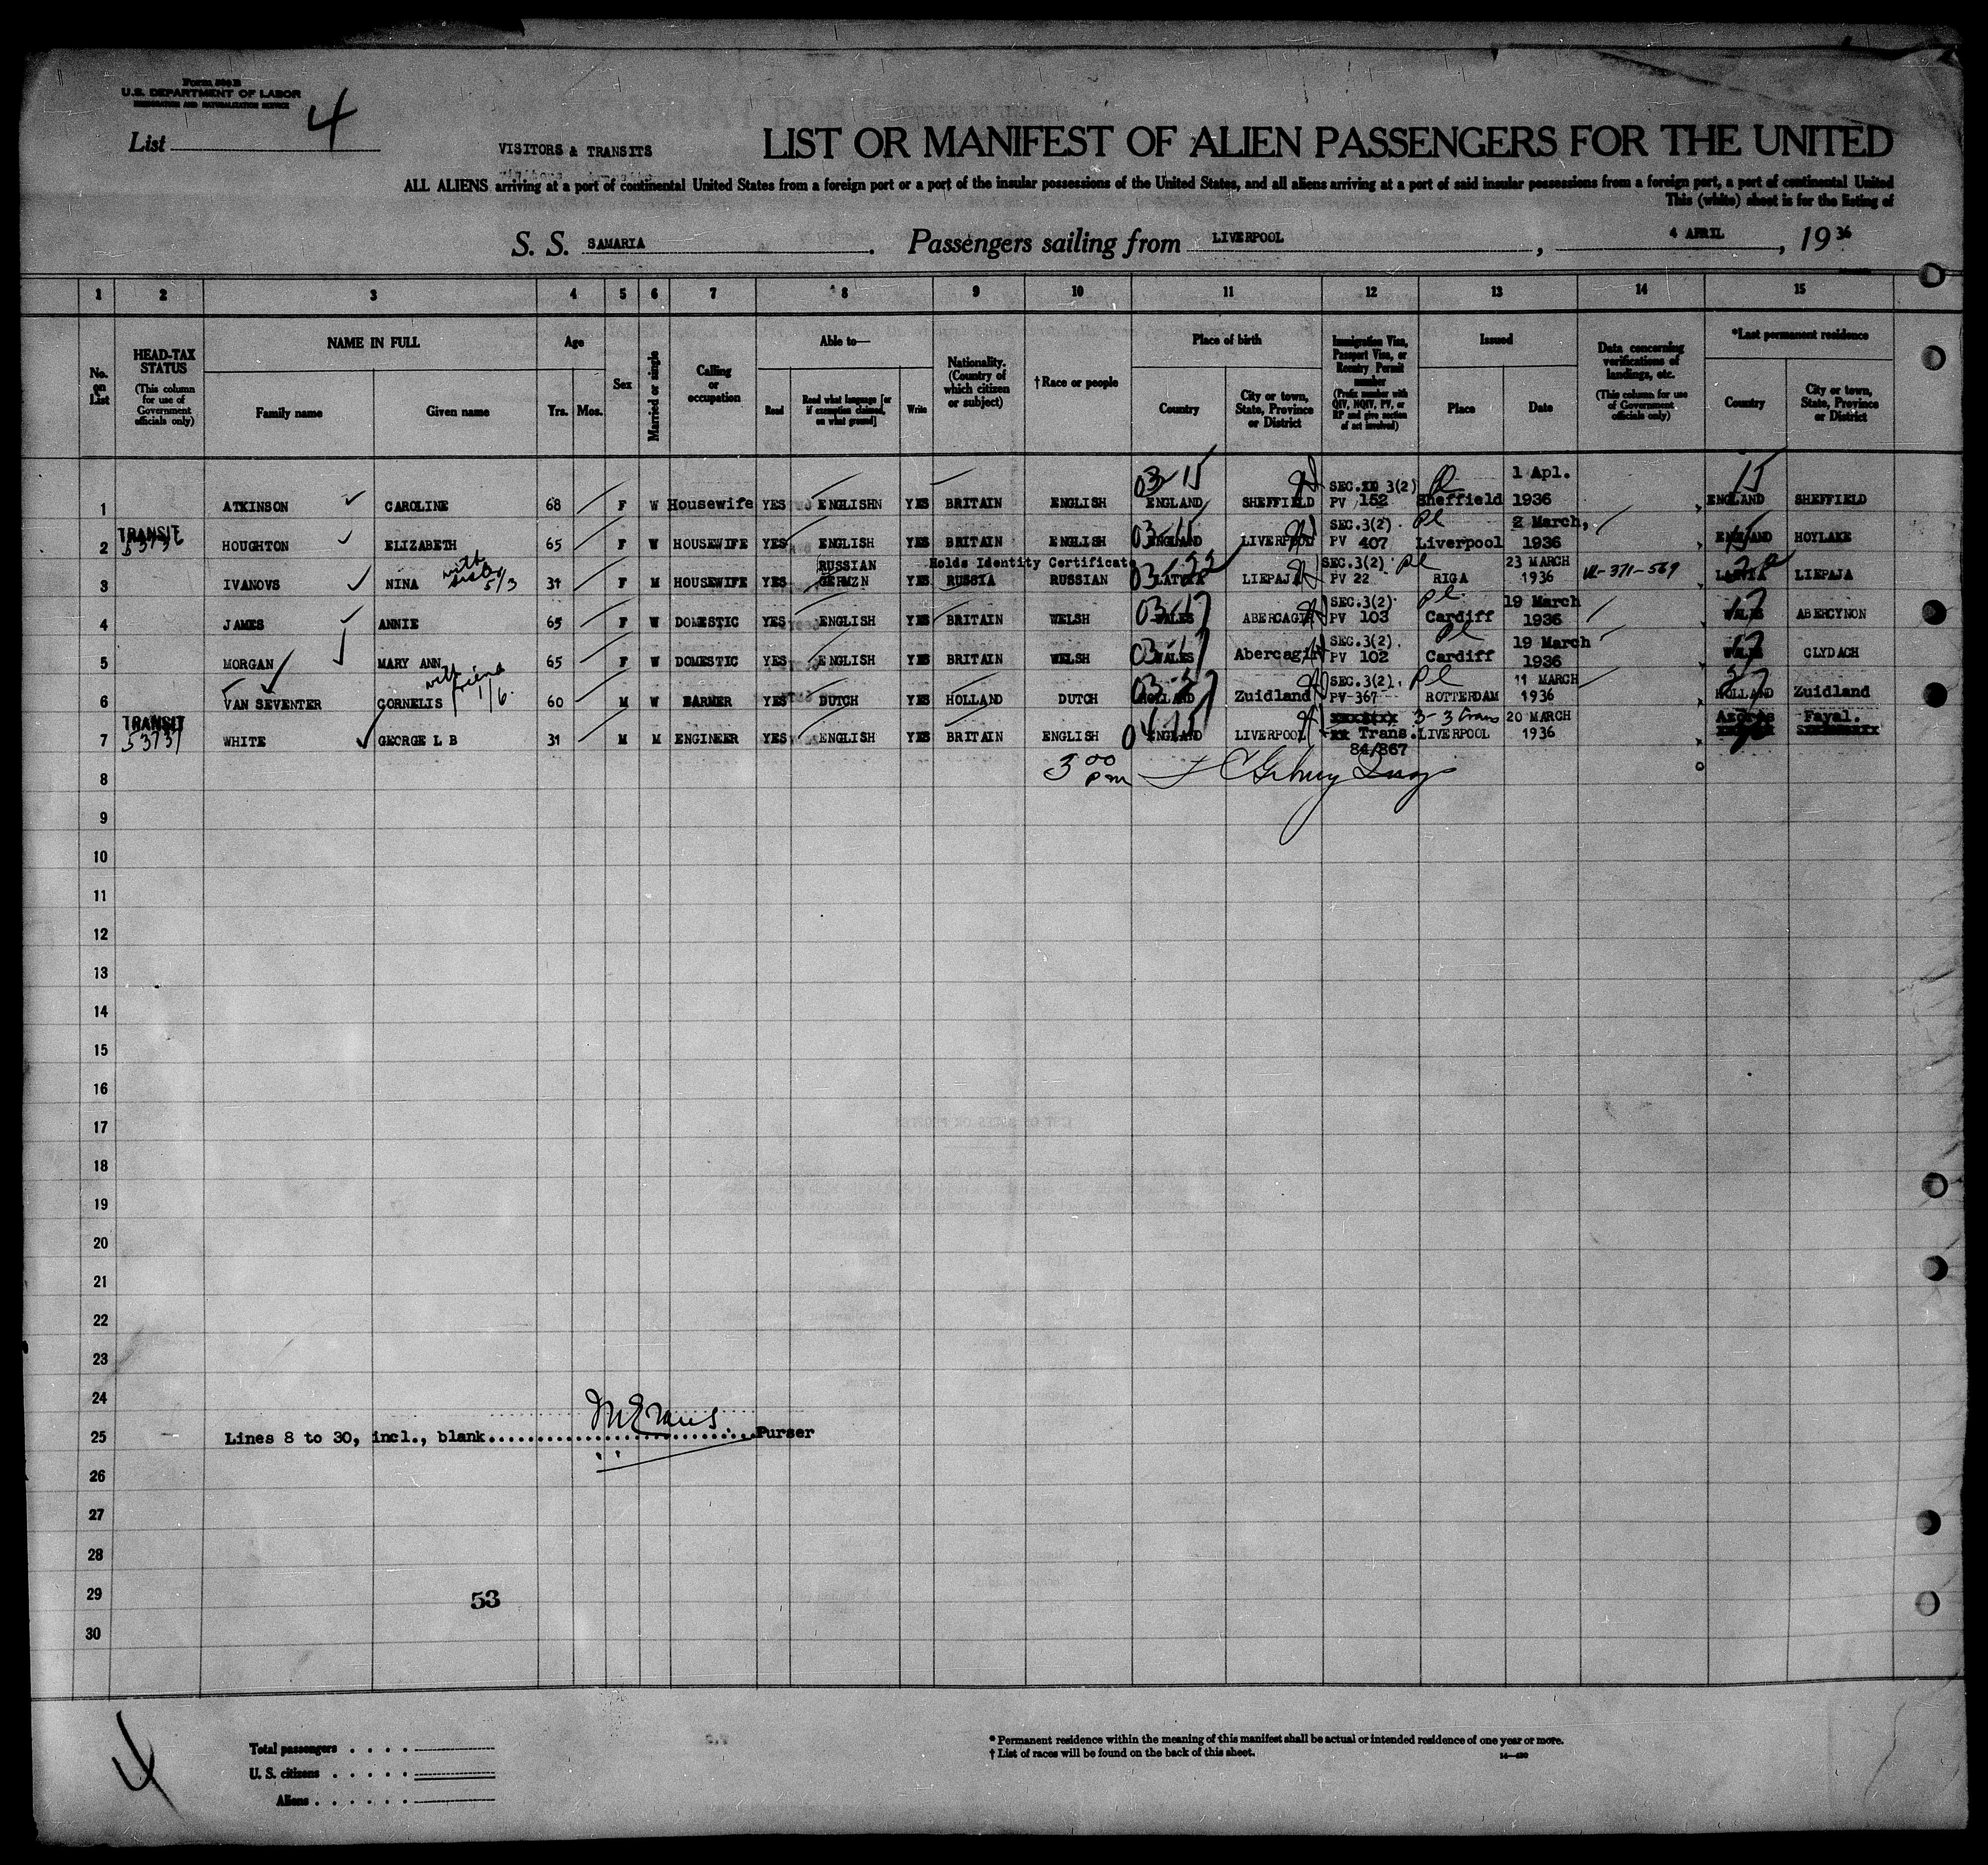 Form 500 B
U.S. DEPARTMENT OF LABOR
IMMIGRATION AND NATURALIZATION SERVICE
List 4
VISITORS & TRANSITS
LIST OR MANIFEST OF ALIEN PASSENGERS FOR THE UNITED
ALL ALIENS arriving at a port of continental United States from a foreign port or a port of the insular possessions of the United States, and all aliens arriving at a port of said insular possessions from a foreign port, a port of continental United
This (white) sheet is for the listing of
S. S. SAMARIA. Passengers sailing from LIVERPOOL, 4 APRIL, 1936
1 2 3 4 5 6 7 8 9 10 11 12 13 14 15
No. on List
HEAD-TAX STATUS (This column for use of Government officials only)
NAME IN FULL Family name Given name
Age Yrs. Mos.
Sex
Married or single
Calling or occupation
Able to— Read Read what language [or if exemption claimed, on what ground] Write
Nationality. (Country of which citizen or subject)
†Race or people
Place of birth Country City or town, State, Province or District
Immigration Visa, Passport Visa, or Reentry Permit number (Prefix number with QIV, NQIV, PV, or RP and give section of act involved)
Issued Place Date
Data concerning verifications of landings, etc. (This column for use of Government officials only)
*Last permanent residence Country City or town, State, Province or District
1 ATKINSON CAROLINE 68 F W Housewife YES ENGLISHN YES BRITAIN ENGLISH 03-15 ENGLAND SHEFFIELD SEC. 3(2) PV 152 Sheffield 1 Apl. 1936 15 ENGLAND SHEFFIELD
TRANSIT
2 HOUGHTON ELIZABETH 65 F W HOUSEWIFE YES ENGLISH YES BRITAIN ENGLISH 03-15 ENGLAND LIVERPOOL SEC.3(2) PV 407 Liverpool 2 March, 1936 15 ENGLAND HOYLAKE
3 IVANOVS NINA with 5/3 31 F M HOUSEWIFE YES RUSSIAN GERMZN YES Holds Identity Certificate RUSSIA RUSSIAN 03-22 LATVIA LIEPAJA SEC.3(2) PV 22 RIGA 23 MARCH 1936 LATVIA LIEPAJA
4 JAMES ANNIE 65 F W DOMESTIC YES ENGLISH YES BRITAIN WELSH 03-17 WALES SEC.3(2) PV 103 Cardiff 19 March 1936 17 WALES ABERCYNON
5 MORGAN MARY ANN 65 F W DOMESTIC YES ENGLISH YES BRITAIN WELSH 03-17 WALES SEC.3(2) PV 102 Cardiff 19 March 1936 17 WALES CLYDACH
6 VAN SEVENTER CORNELIS with friend 1/6 60 M W FARMER YES DUTCH YES HOLLAND DUTCH HOLLAND Zuidland SEC.3(2) PV-367 ROTTERDAM 11 MARCH 1936 HOLLAND Zuidland
TRANSIT
7 53731 WHITE GEORGE L B 31 M M ENGINEER YES ENGLISH YES BRITAIN ENGLISH ENGLAND LIVERPOOL Trans. 84/867 3-3 trans LIVERPOOL 20 MARCH 1936 Azores Fayal.
8 3 00 pm
9
10
11
12
13
14
15
16
17
18
19
20
21
22
23
24
25 Lines 8 to 30, incl., blank M Evans Purser
26
27
28
29 53
30
4
Total passengers
U. S. citizens
Aliens
* Permanent residence within the meaning of this manifest shall be actual or intended residence of one year or more.
† List of races will be found on the back of this sheet.